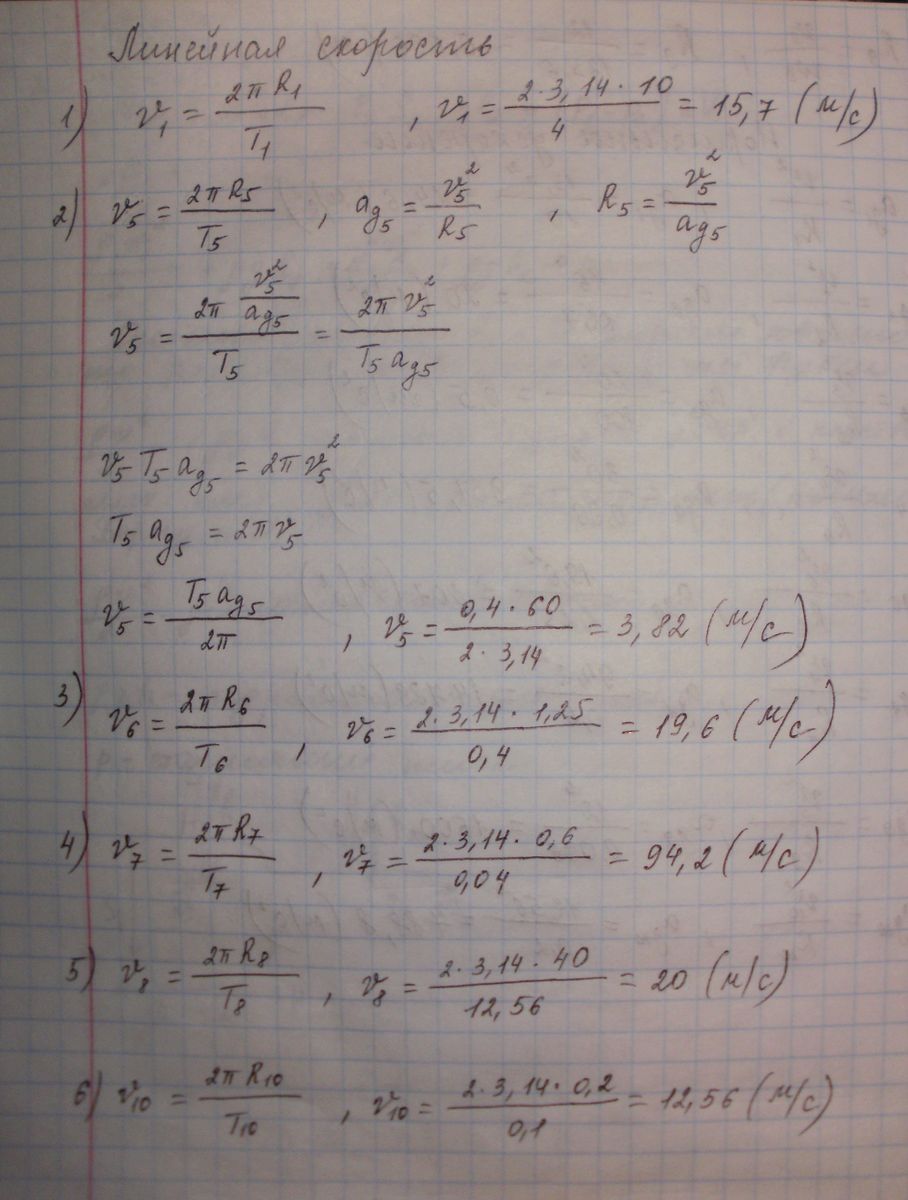 Линейная скорость
1) v₁ = 2πR₁/T₁ , v₁ = 2·3,14·10/4 = 15,7 (м/с)
2) v₅ = 2πR₅/T₅ , aд₅ = v₅²/R₅ , R₅ = v₅²/aд₅
v₅ = 2π (v₅²/aд₅)/T₅ = 2πv₅²/T₅aд₅
v₅T₅aд₅ = 2πv₅²
T₅aд₅ = 2πv₅
v₅ = T₅aд₅/2π , v₅ = 0,4·60/2·3,14 = 3,82 (м/с)
3) v₆ = 2πR₆/T₆ , v₆ = 2·3,14·1,25/0,4 = 19,6 (м/с)
4) v₇ = 2πR₇/T₇ , v₇ = 2·3,14·0,6/0,04 = 94,2 (м/с)
5) v₈ = 2πR₈/T₈ , v₈ = 2·3,14·40/12,56 = 20 (м/с)
6) v₁₀ = 2πR₁₀/T₁₀ , v₁₀ = 2·3,14·0,2/0,1 = 12,56 (м/с)